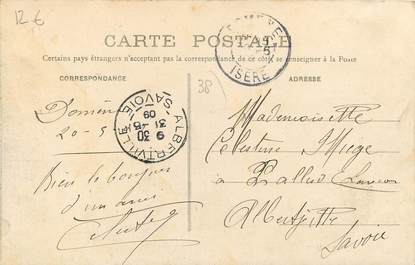 12 €
CARTE POSTALE
Certains pays étrangers n'acceptant pas la correspondance de ce côté se renseigner à la Poste
CORRESPONDANCE
ADRESSE
ISERE
38
ALBERTVILLE
SAVOIE
9 30
31
09
Domène
20-5
Bien le bonjour
d'un ami
Mademoiselle
Celestine
à Pallud
Albertville
Savoie